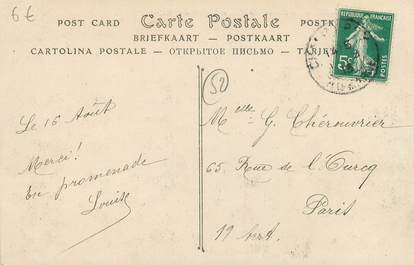 6€
POST CARD Carte Postale POSTK
BRIEFKAART — POSTKAART
CARTOLINA POSTALE — ОТКРЫТОЕ ПИСЬМО — TARJE
52
5c
POSTES
Le 16 Août
Merci!
En promenade
Louise
Melle G. Chéruvrier
65, Rue de l'Ourcq
Paris
19 art.